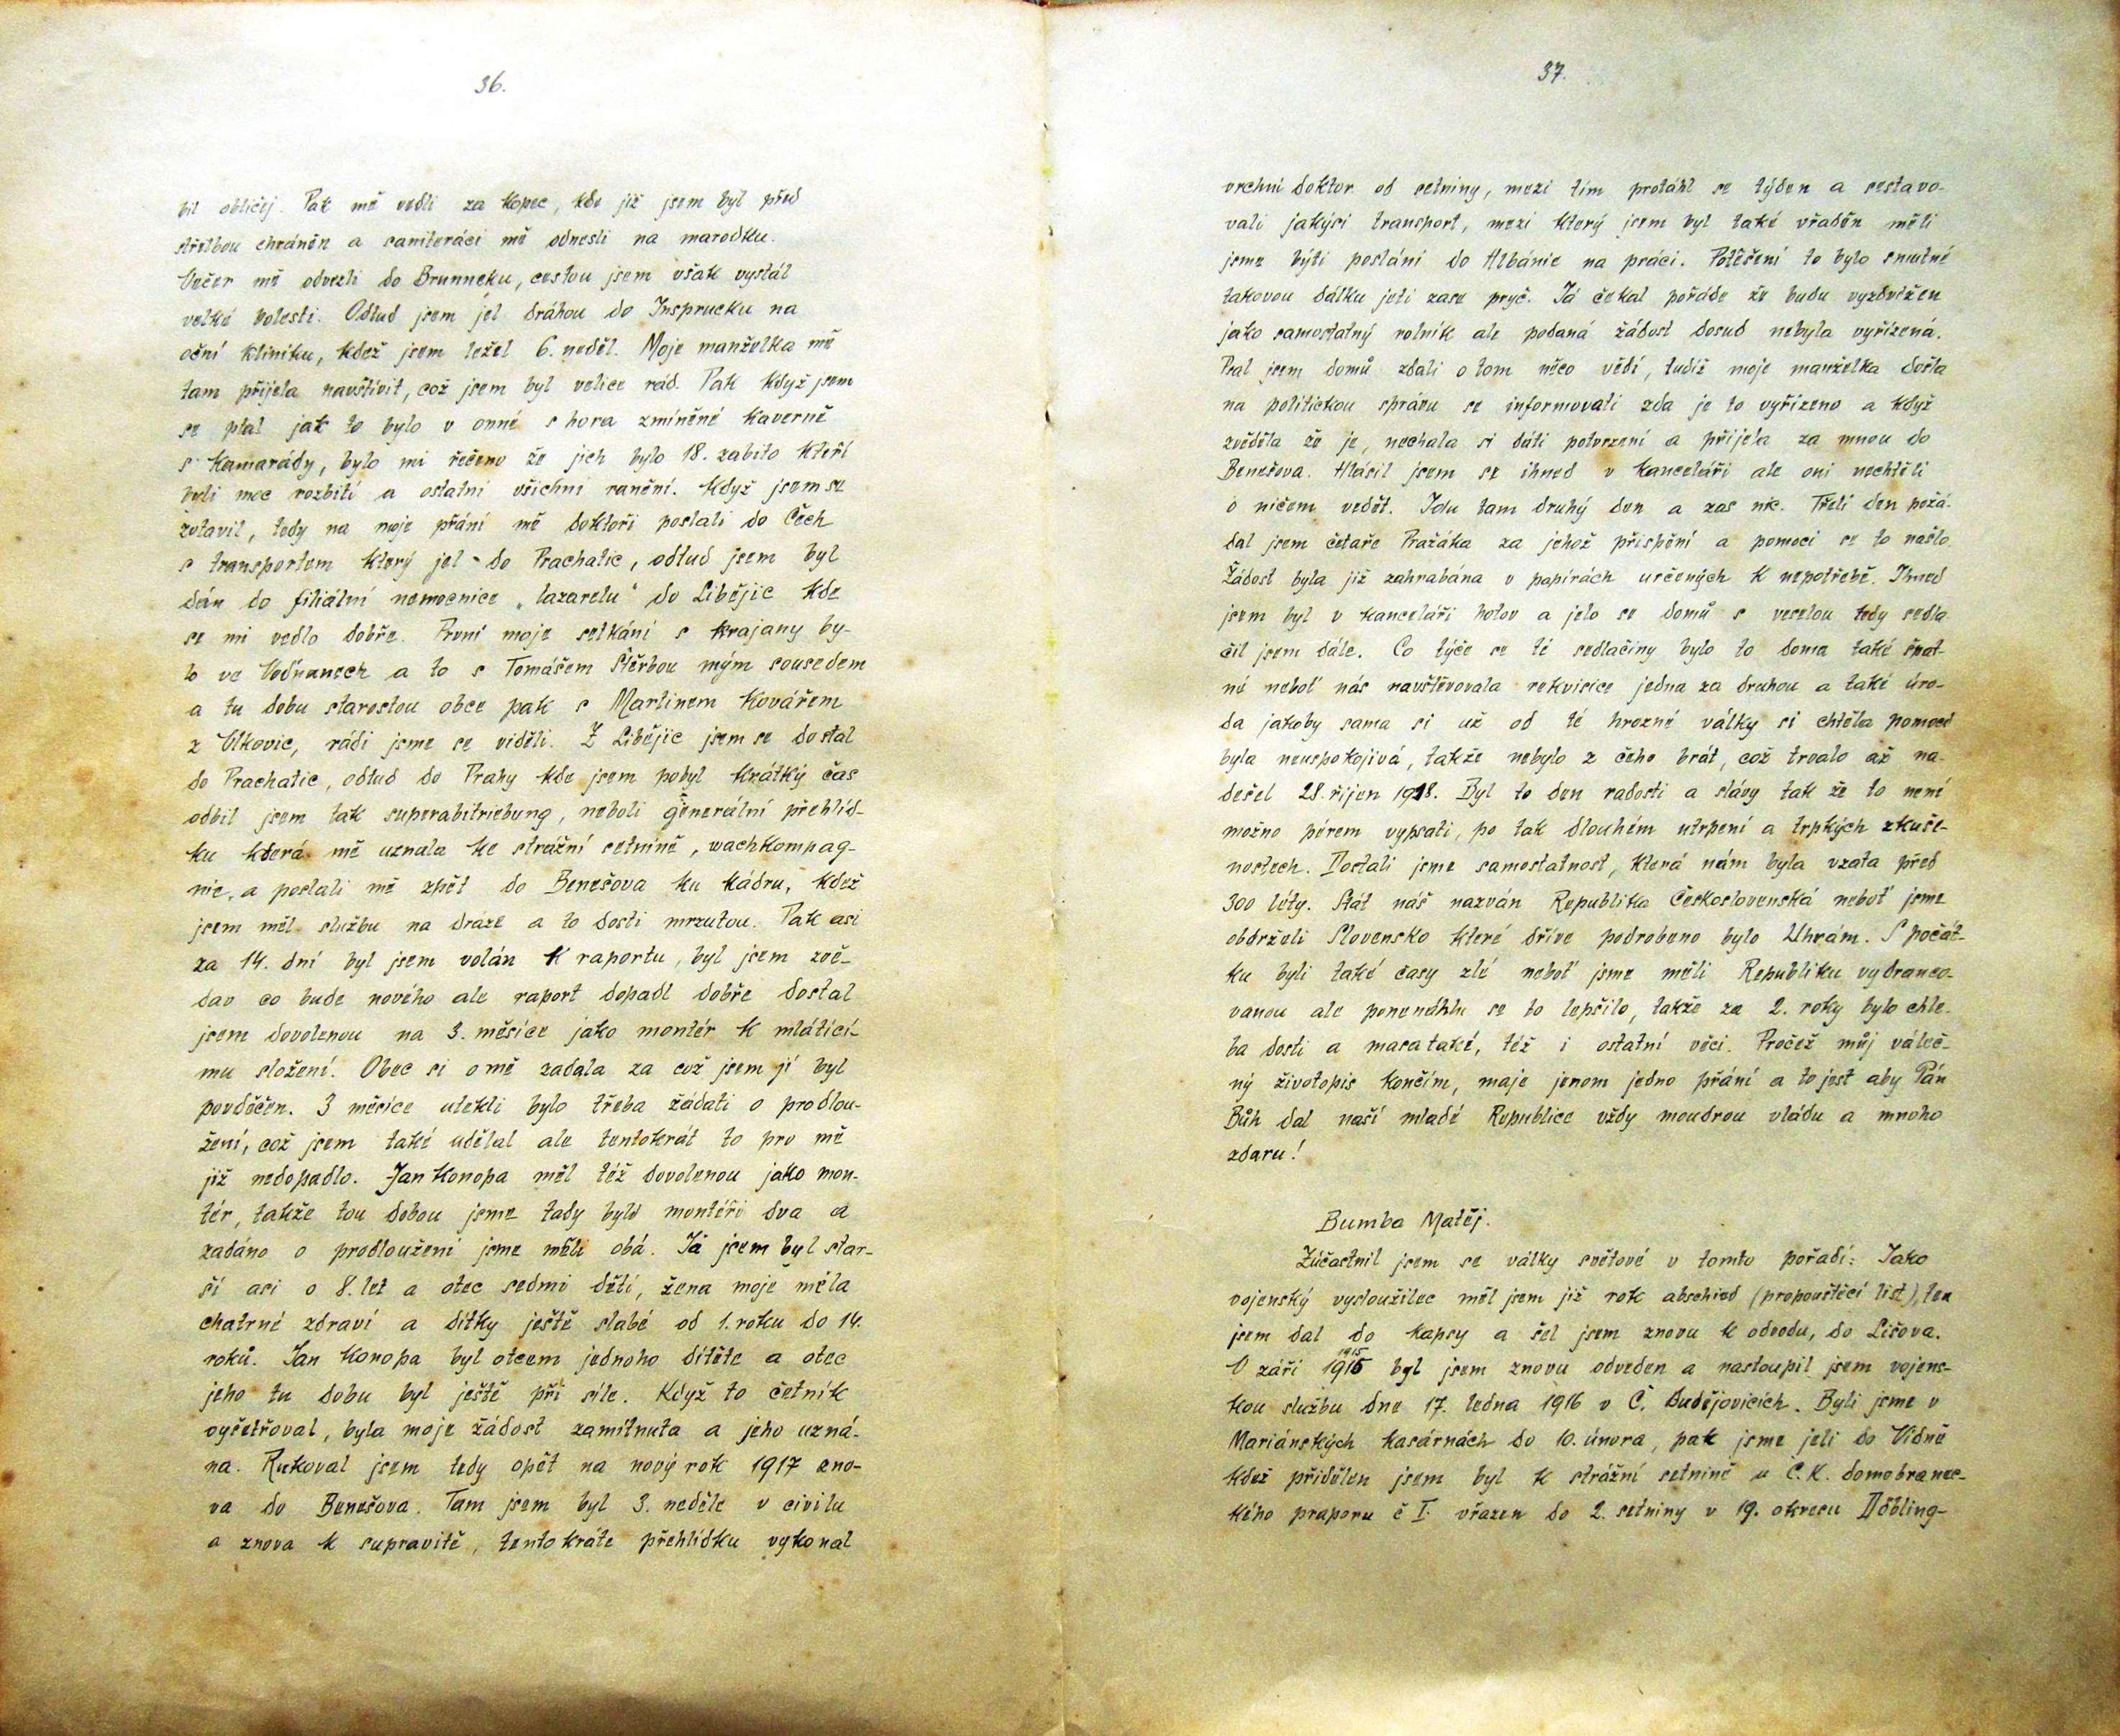 36.
bil obličej. Pak mě vedli za kopec, kde již jsem byl před
střelbou chráněn a saniteráci mě odnesli na marodku.
Večer mě odvezli do Brunneku, cestou jsem však vystál
velké bolesti. Odtud jsem jel dráhou do Insprucku na
oční kliniku, kdež jsem ležel 6. neděl. Moje manželka mě
tam přijela navštívit, což jsem byl velice rád. Pak když jsem
se ptal jak to bylo v onné s hora zmíněné kaverně
s kamarády, bylo mi řečeno že jich bylo 18. zabito kteří
byli moc rozbití a ostatní všichni ranění. Když jsem se
zotavil, tedy na moje přání mě doktoři poslali do Čech
s transportem který jel do Prachatic, odtud jsem byl
dán do filiální nemocnice „lazaretu“ do Libějic kde
se mi vedlo dobře. První moje setkání s krajany by-
lo ve Vodňanech a to s Tomášem Štěrbou mým sousedem
a tu dobu starostou obce pak s Martinem Kovářem
z Vlkovic, rádi jsme se viděli. Z Libějic jsem se dostal
do Prachatic, odtud do Prahy kde jsem pobyl krátký čas
odbil jsem tak superabitriebung, neboli generální přehlíd-
ku která mě uznala ke strážní setnině, wachkompag-
nie, a poslali mě zpět do Benešova ku kádru, kdež
jsem měl službu na dráze a to dosti mrzutou. Pak asi
za 14. dní byl jsem volán k raportu, byl jsem zvě-
dav co bude nového ale raport dopadl dobře dostal
jsem dovolenou na 3. měsíce jako montér k mlátící-
mu složení. Obec si o mě zadala za což jsem jí byl
povděčen. 3 měsíce utekli bylo třeba žádati o prodlou-
žení, což jsem také udělal ale tentokrát to pro mě
již nedopadlo. Jan Konopa měl též dovolenou jako mon-
tér, takže tou dobou jsme tady byly montéři dva a
zadáno o prodloužení jsme měli obá. Já jsem byl star-
ší asi o 8. let a otec sedmi dětí, žena moje měla
chatrné zdraví a dítky ještě slabé od 1. roku do 14.
roků. Jan Konopa byl otcem jednoho dítěte a otec
jeho tu dobu byl ještě při síle. Když to četník
vyšetřoval, byla moje žádost zamítnuta a jeho uzná-
na. Rukoval jsem tedy opět na nový rok 1917 zno-
va do Benešova. Tam jsem byl 3. neděle v civilu
a znova k supravitě, tentokráte přehlídku vykonal
37.
vrchní doktor od setniny, mezi tím protáhl se týden a sestavo-
vali jakýsi transport, mezi který jsem byl také vřaděn měli
jsme býti posláni do Albánie na práci. Potěšení to bylo smutné
takovou dálku jeti zase pryč. Já čekal pořáde že budu vyzdvižen
jako samostatný rolník ale podaná žádost dosud nebyla vyřízená.
Psal jsem domů zdali o tom něco vědí, tudíž moje manželka došla
na politickou správu se informovati zda je to vyřízeno a když
zvěděla že je, nechala si dáti potvrzení a přijela za mnou do
Benešova. Hlásil jsem se ihned v kanceláři ale oni nechtěli
o ničem vedět. Jdu tam druhý den a zas nic. Třetí den požá-
dal jsem četaře Pražáka za jehož přispění a pomoci se to našlo.
Žádost byla již zahrabána v papírách určených k nepotřebě. Ihned
jsem byl v kanceláři hotov a jelo se domů s veselou tedy sedla-
čil jsem dále. Co týče se té sedlačiny bylo to doma také špat-
né neboť nás navštěvovala rekvisice jedna za druhou a také úro-
da jakoby sama si už od té hrozné války si chtěla pomoci
byla neuspokojivá, takže nebylo z čeho brát, což trvalo až na-
dešel 28. říjen 1918. Byl to den radosti a slávy tak že to není
možno pérem vypsati, po tak dlouhém utrpení a trpkých zkuše-
nostech. Dostali jsme samostatnost, která nám byla vzata před
300 léty. Stát náš nazván Republika Československá neboť jsme
obdrželi Slovensko které dříve podrobeno bylo Uhrám. S počát-
ku byli také časy zlé neboť jsme měli Republiku vydranco-
vanou ale ponenáhlu se to lepšilo, takže za 2. roky bylo chle-
ba dosti a masa také, též i ostatní věci. Pročež můj váleč-
ný životopis končím, maje jenom jedno přání a to jest aby Pán
Bůh dal naší mladé Republice vždy moudrou vládu a mnoho
zdaru!
Bumba Matěj.
Zúčastnil jsem se války světové v tomto pořadí: Jako
vojenský vysloužilec měl jsem již rok abschied (propouštěcí list), ten
jsem dal do kapsy a šel jsem znovu k odvodu, do Lišova.
1915
V září 1916 byl jsem znovu odveden a nastoupil jsem vojens-
kou službu dne 17. ledna 1916 v Č. Budějovicích. Byli jsme v
Mariánských kasárnách do 10. února, pak jsme jeli do Vídně
kdež přidělen jsem byl k strážní setnině u C.K. domobranec-
kého praporu č I. vřazen do 2. setniny v 19. okresu Döbling-